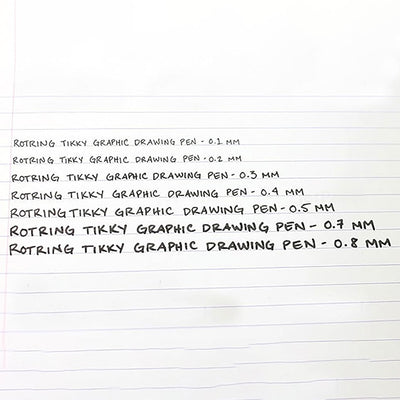 ROTRING TIKKY GRAPHIC DRAWING PEN - 0.1 MM
ROTRING TIKKY GRAPHIC DRAWING PEN - 0.2 MM
ROTRING TIKKY GRAPHIC DRAWING PEN - 0.3 MM
ROTRING TIKKY GRAPHIC DRAWING PEN - 0.4 MM
ROTRING TIKKY GRAPHIC DRAWING PEN - 0.5 MM
ROTRING TIKKY GRAPHIC DRAWING PEN - 0.7 MM
ROTRING TIKKY GRAPHIC DRAWING PEN - 0.8 MM